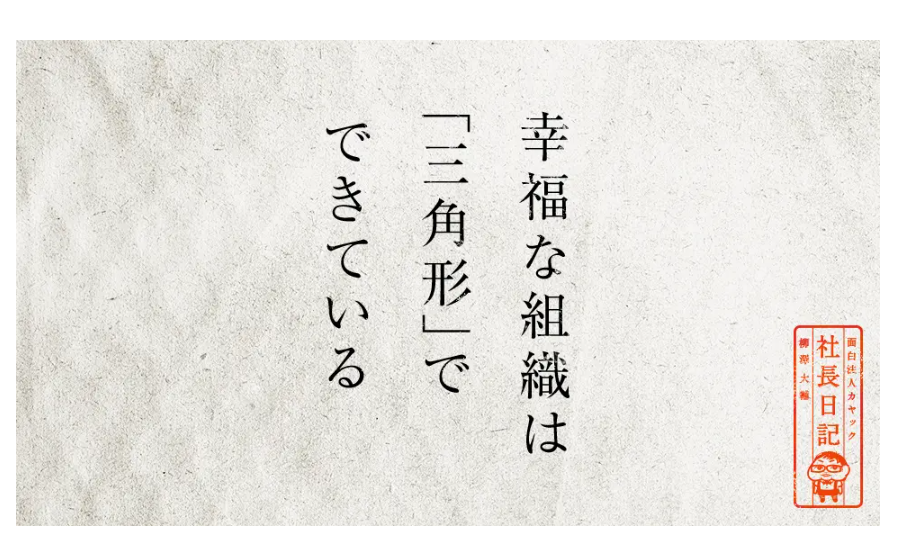 幸福な組織は
「三角形」で
できている
面白法人カヤック
社長日記
柳澤大輔